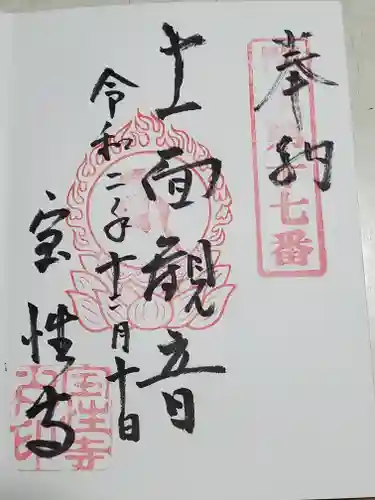 奉納
七番
十一面観音
令和二年十二月十日
宝性寺
宝性寺
之印